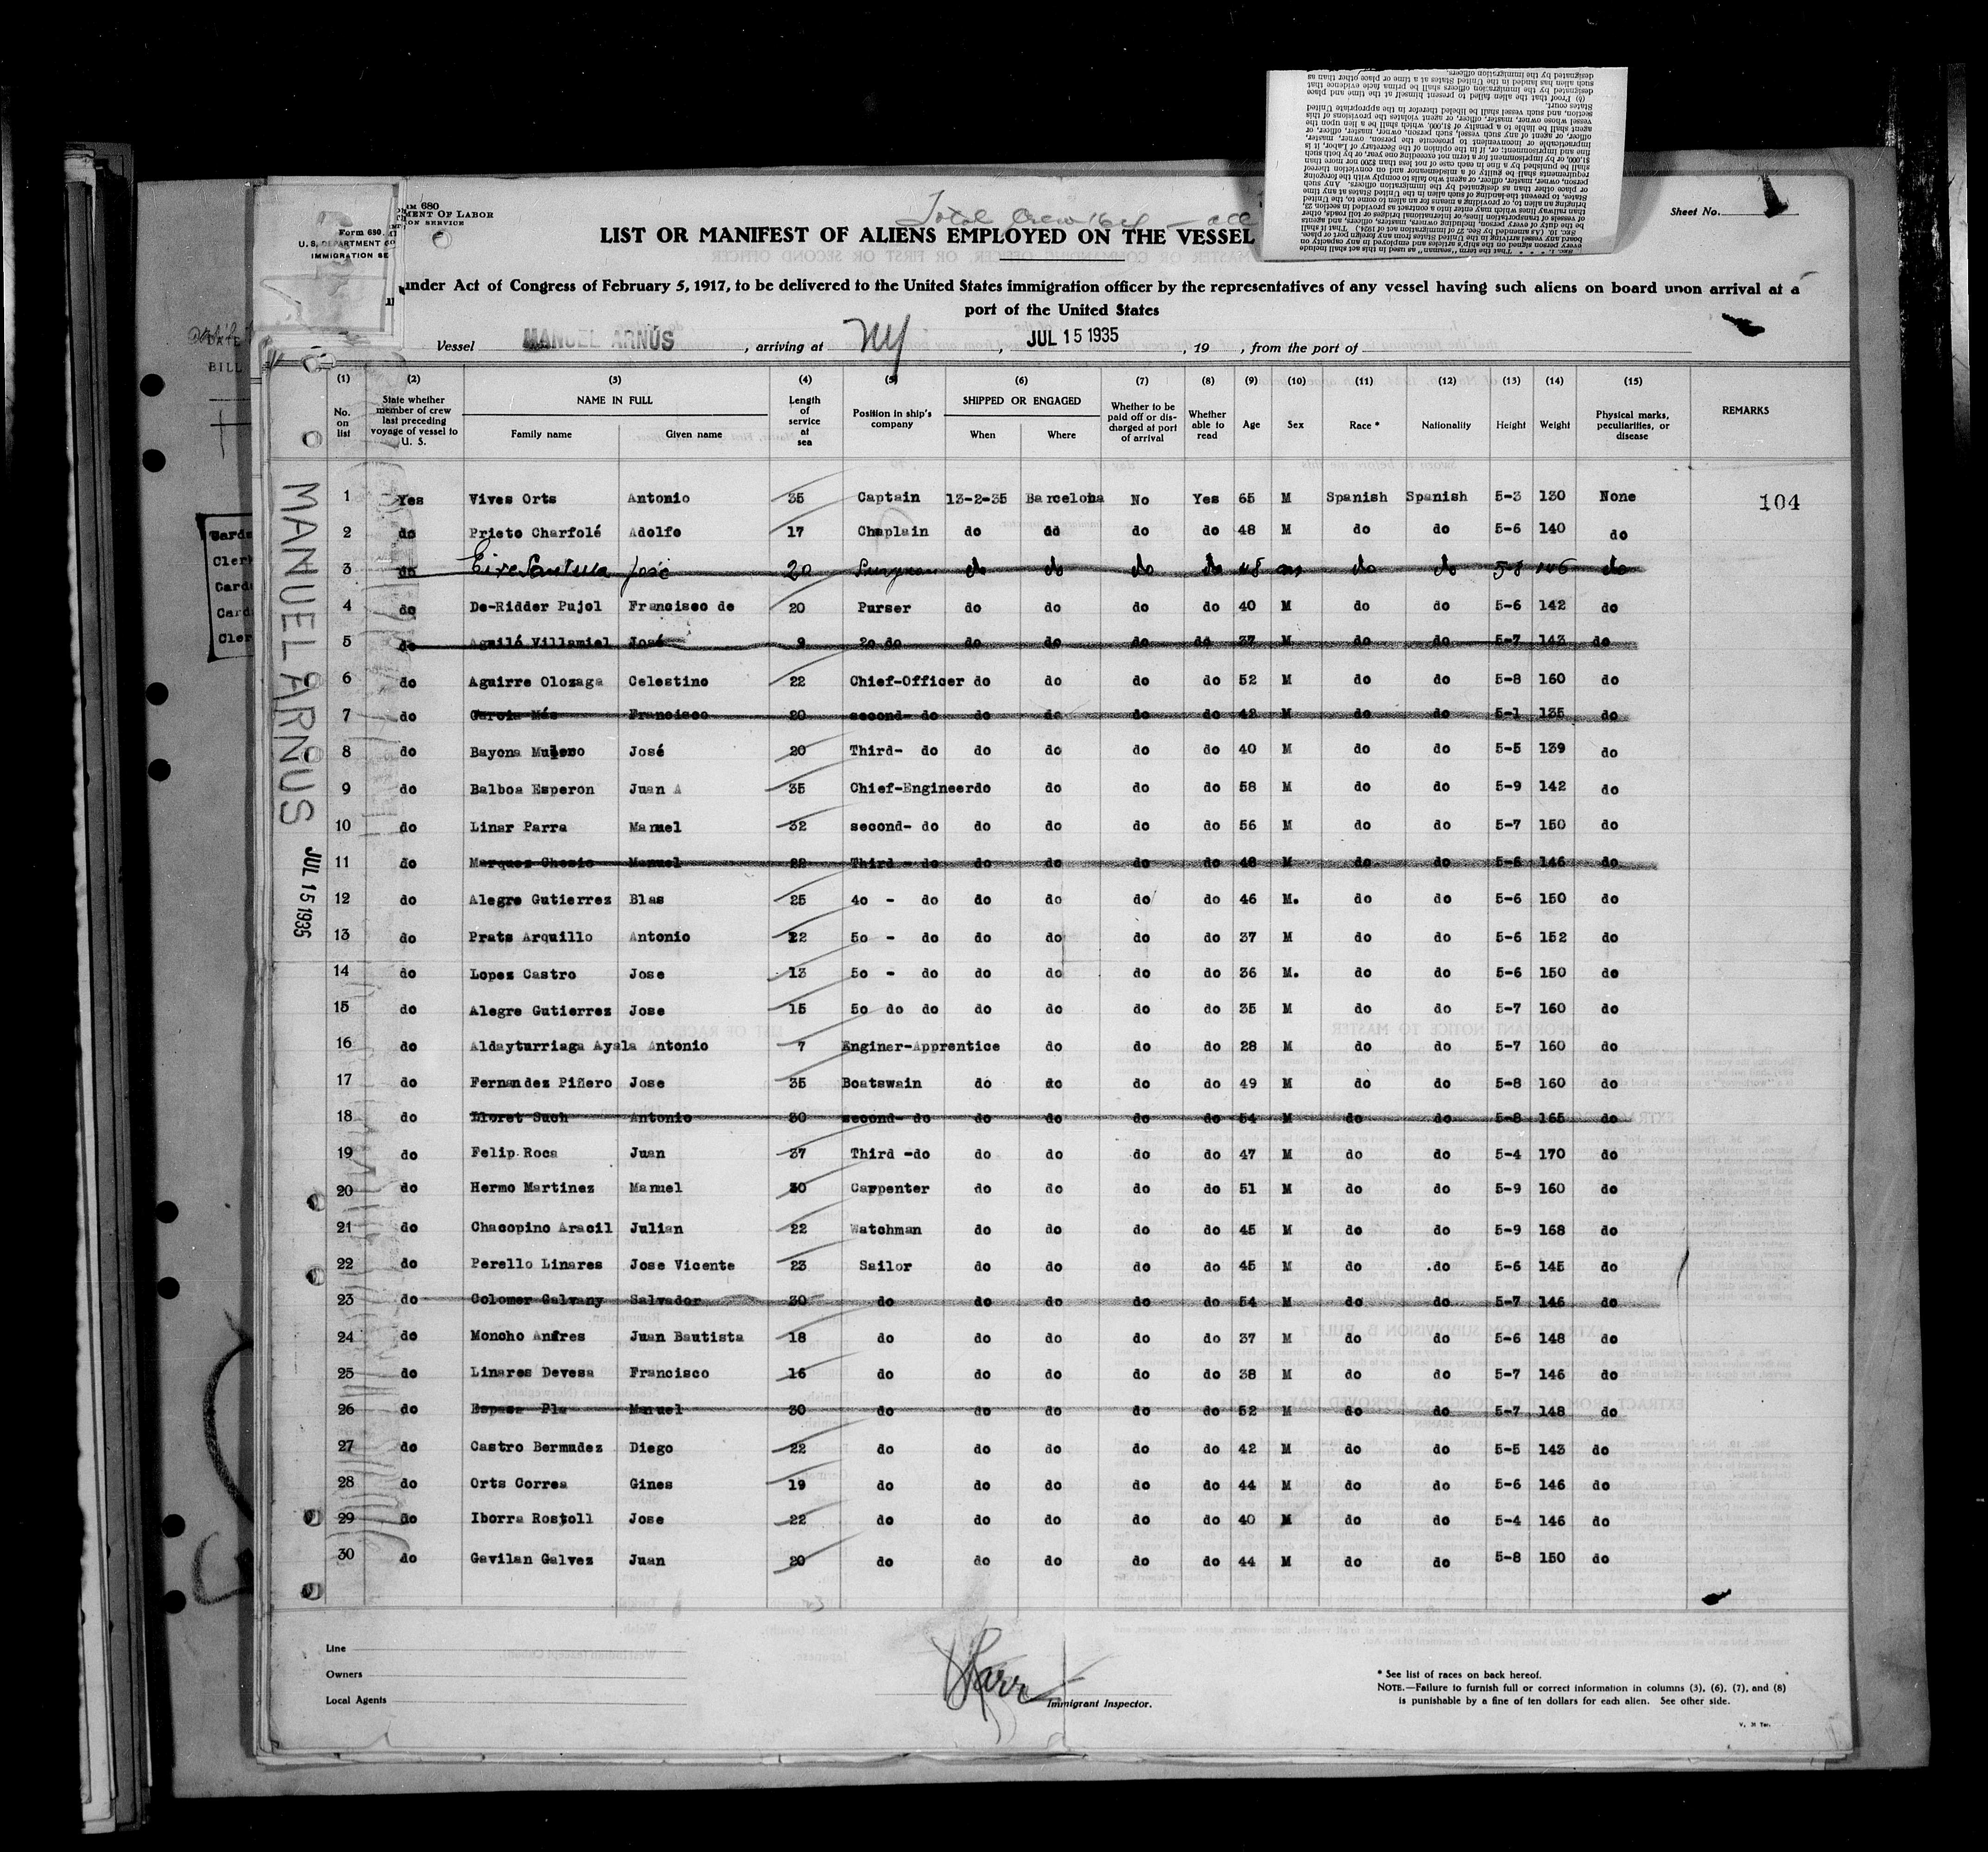 Form 680
U. S. DEPARTMENT OF LABOR
IMMIGRATION SERVICE
Sheet No.
Total Crew
LIST OR MANIFEST OF ALIENS EMPLOYED ON THE VESSEL
under Act of Congress of February 5, 1917, to be delivered to the United States immigration officer by the representatives of any vessel having such aliens on board upon arrival at a
port of the United States
Vessel MANUEL ARNÚS, arriving at NY, JUL 15 1935, 19 , from the port of
(1) (2) (3) (4) (5) (6) (7) (8) (9) (10) (11) (12) (13) (14) (15)
No. on list | State whether member of crew last preceding voyage of vessel to U. S. | NAME IN FULL | Family name | Given name | Length of service at sea | Position in ship's company | SHIPPED OR ENGAGED | When | Where | Whether to be paid off or discharged at port of arrival | Whether able to read | Age | Sex | Race * | Nationality | Height | Weight | Physical marks, peculiarities, or disease | REMARKS
1 Yes Vives Orts Antonio 35 Captain 13-2-35 Barcelona No Yes 65 M Spanish Spanish 5-3 130 None 104
2 do Prieto Charfolé Adolfo 17 Chaplain do do do do 48 M do do 5-6 140 do
3 do José 20 Surgeon do do do do 45 do do do
4 do De-Ridder Pujol Francisco de 20 Purser do do do do 40 M do do 5-6 142 do
5 do Aguiló Villamiel José 9 2o do do do do do 37 M do do 5-7 143 do
6 do Aguirre Olozaga Celestino 22 Chief-Officer do do do do 52 M do do 5-8 160 do
7 do Garcia Más Francisco 20 second- do do do do do 42 M do do 5-1 135 do
8 do Bayona Mulero José 20 Third- do do do do do 40 M do do 5-5 139 do
9 do Balboa Esperon Juan A 35 Chief-Engineer do do do do 58 M do do 5-9 142 do
10 do Linar Parra Manuel 32 second- do do do do do 56 M do do 5-7 150 do
11 do Marquez Manuel 22 Third - do do do do do 48 M do do 5-6 146 do
12 do Alegre Gutierrez Blas 25 4o - do do do do do 46 M. do do 5-6 150 do
13 do Prats Arquillo Antonio 22 5o - do do do do do 37 M do do 5-6 152 do
14 do Lopez Castro Jose 13 5o - do do do do do 36 M. do do 5-6 150 do
15 do Alegre Gutierrez Jose 15 5o do do do do do do 35 M do do 5-7 160 do
16 do Aldayturriaga Ayala Antonio 7 Enginer-Apprentice do do do 28 M do do 5-7 160 do
17 do Fernandez Piñero Jose 35 Boatswain do do do do 49 M do do 5-8 160 do
18 do Lloret Such Antonio 30 second- do do do do do 54 M do do 5-8 165 do
19 do Felip Roca Juan 37 Third -do do do do do 47 M do do 5-4 170 do
20 do Hermo Martinez Manuel 30 Carpenter do do do do 51 M do do 5-9 160 do
21 do Chacopino Aracil Julian 22 Watchman do do do do 45 M do do 5-9 168 do
22 do Perello Linares Jose Vicente 23 Sailor do do do do 45 M do do 5-6 145 do
23 do Colomer Galvany Salvador 30 do do do do do 54 M do do 5-7 146 do
24 do Moncho Anfres Juan Bautista 18 do do do do do 37 M do do 5-6 148 do
25 do Linares Devesa Francisco 16 do do do do do 38 M do do 5-7 146 do
26 do Espasa Pla Manuel 30 do do do do do 52 M do do 5-7 148 do
27 do Castro Bermudez Diego 22 do do do do do 42 M do do 5-5 143 do
28 do Orts Correa Gines 19 do do do do do 44 M do do 5-6 146 do
29 do Iborra Rostoll Jose 22 do do do do do 40 M do do 5-4 146 do
30 do Gavilan Galvez Juan 20 do do do do do 44 M do do 5-8 150 do
MANUEL ARNUS JUL 15 1935
Line
Owners
Local Agents
Immigrant Inspector.
* See list of races on back hereof.
NOTE.—Failure to furnish full or correct information in columns (3), (6), (7), and (8)
is punishable by a fine of ten dollars for each alien. See other side.